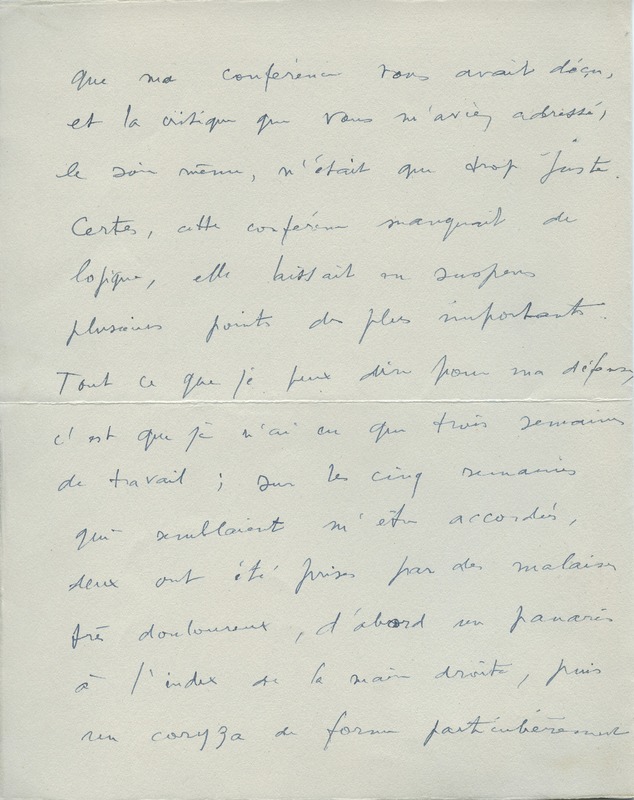 que ma conférence vous avait déçu,
et la critique que vous m'aviez adressé,
le soir même, n'était que trop juste.
Certes, cette conférence manquait de
logique, elle laissait en suspens
plusieurs points des plus importants.
Tout ce que je peux dire pour ma défense,
c'est que je n'ai eu que trois semaines
de travail ; sur les cinq semaines
qui semblaient m'être accordées,
deux ont été prises par des malaises
très douloureux, d'abord un panaris
à l'index de la main droite, puis
un coryza de forme particulièrement